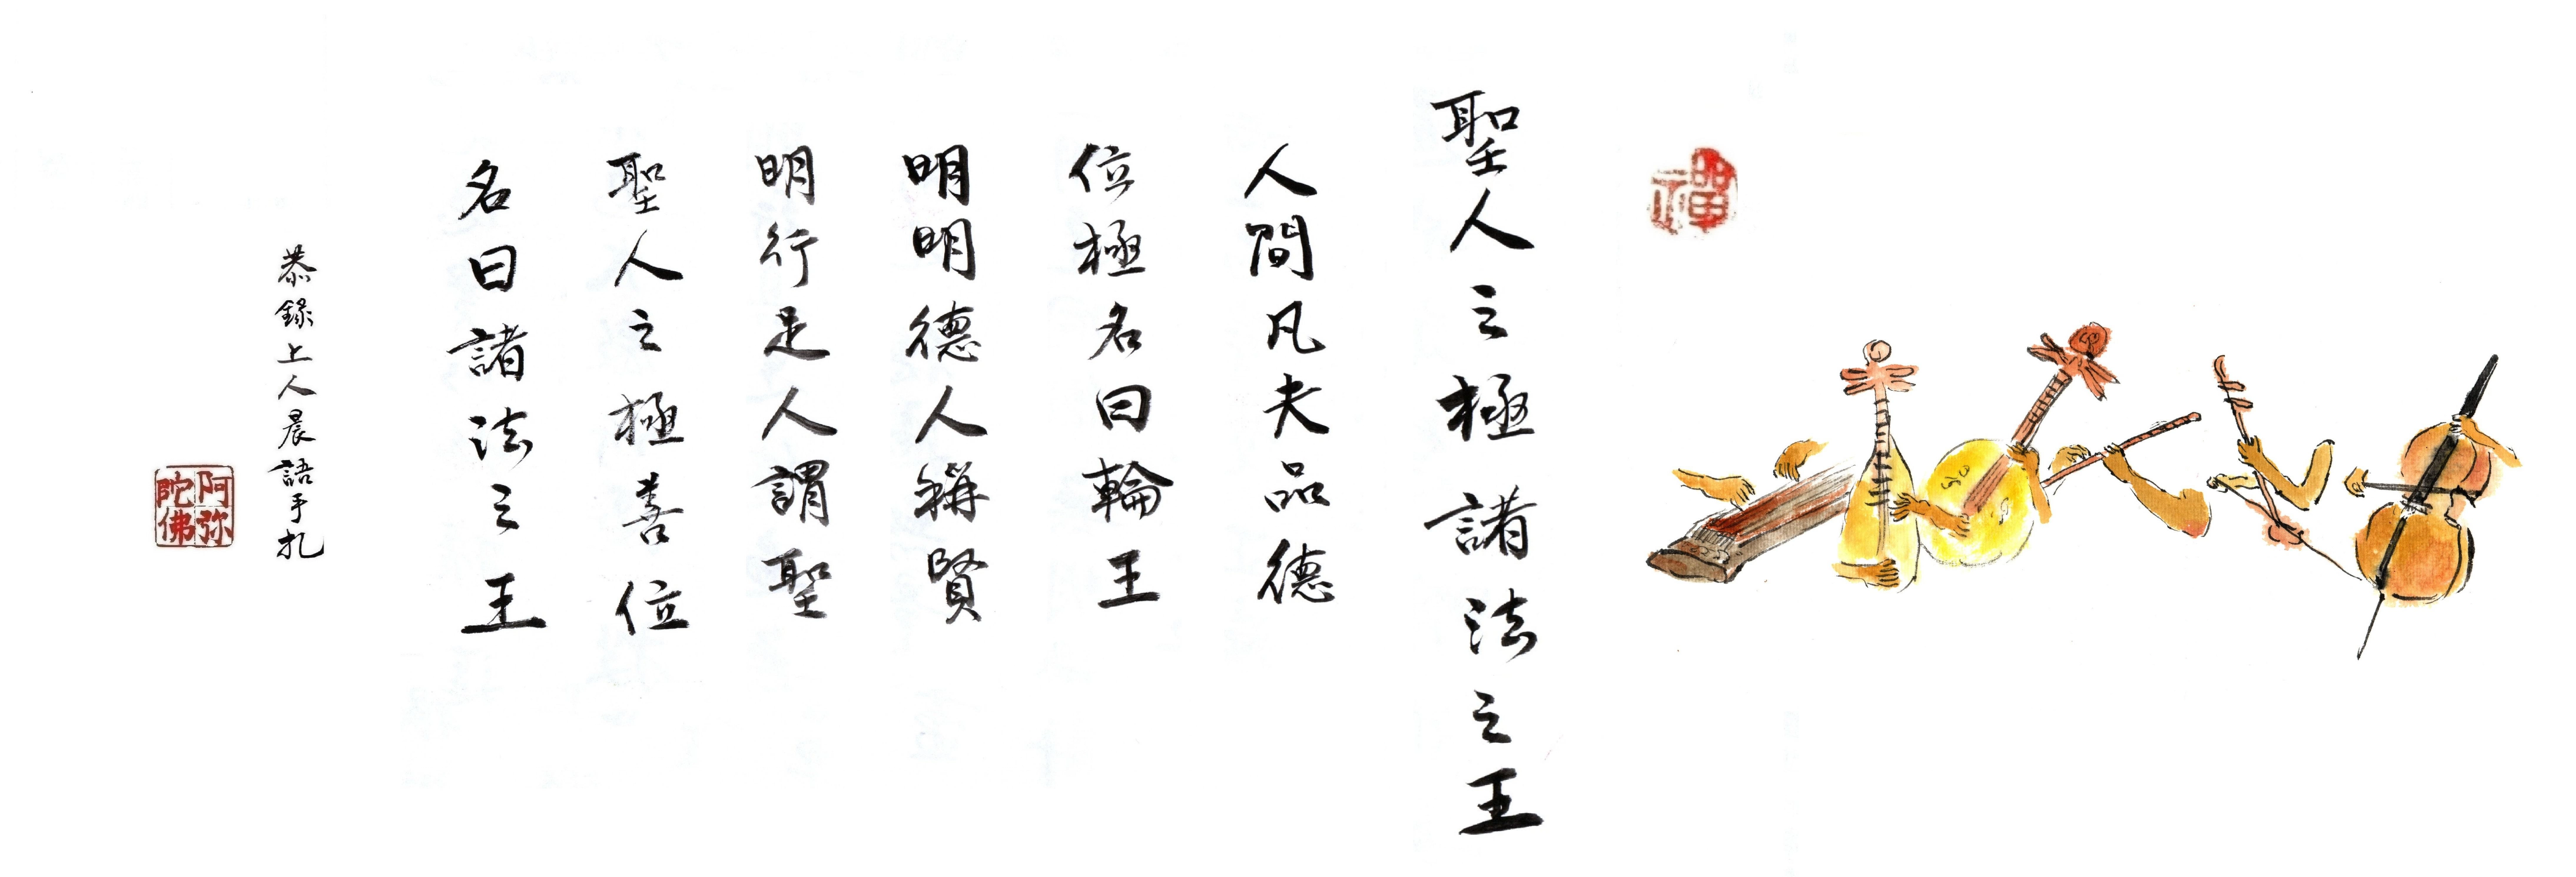 禪
聖人之極諸法之王
人間凡夫品德
位極名曰輪王
明明德人稱賢
明行足人謂聖
聖人之極善位
名曰諸法之王
恭錄上人晨語手札
阿弥
陀佛